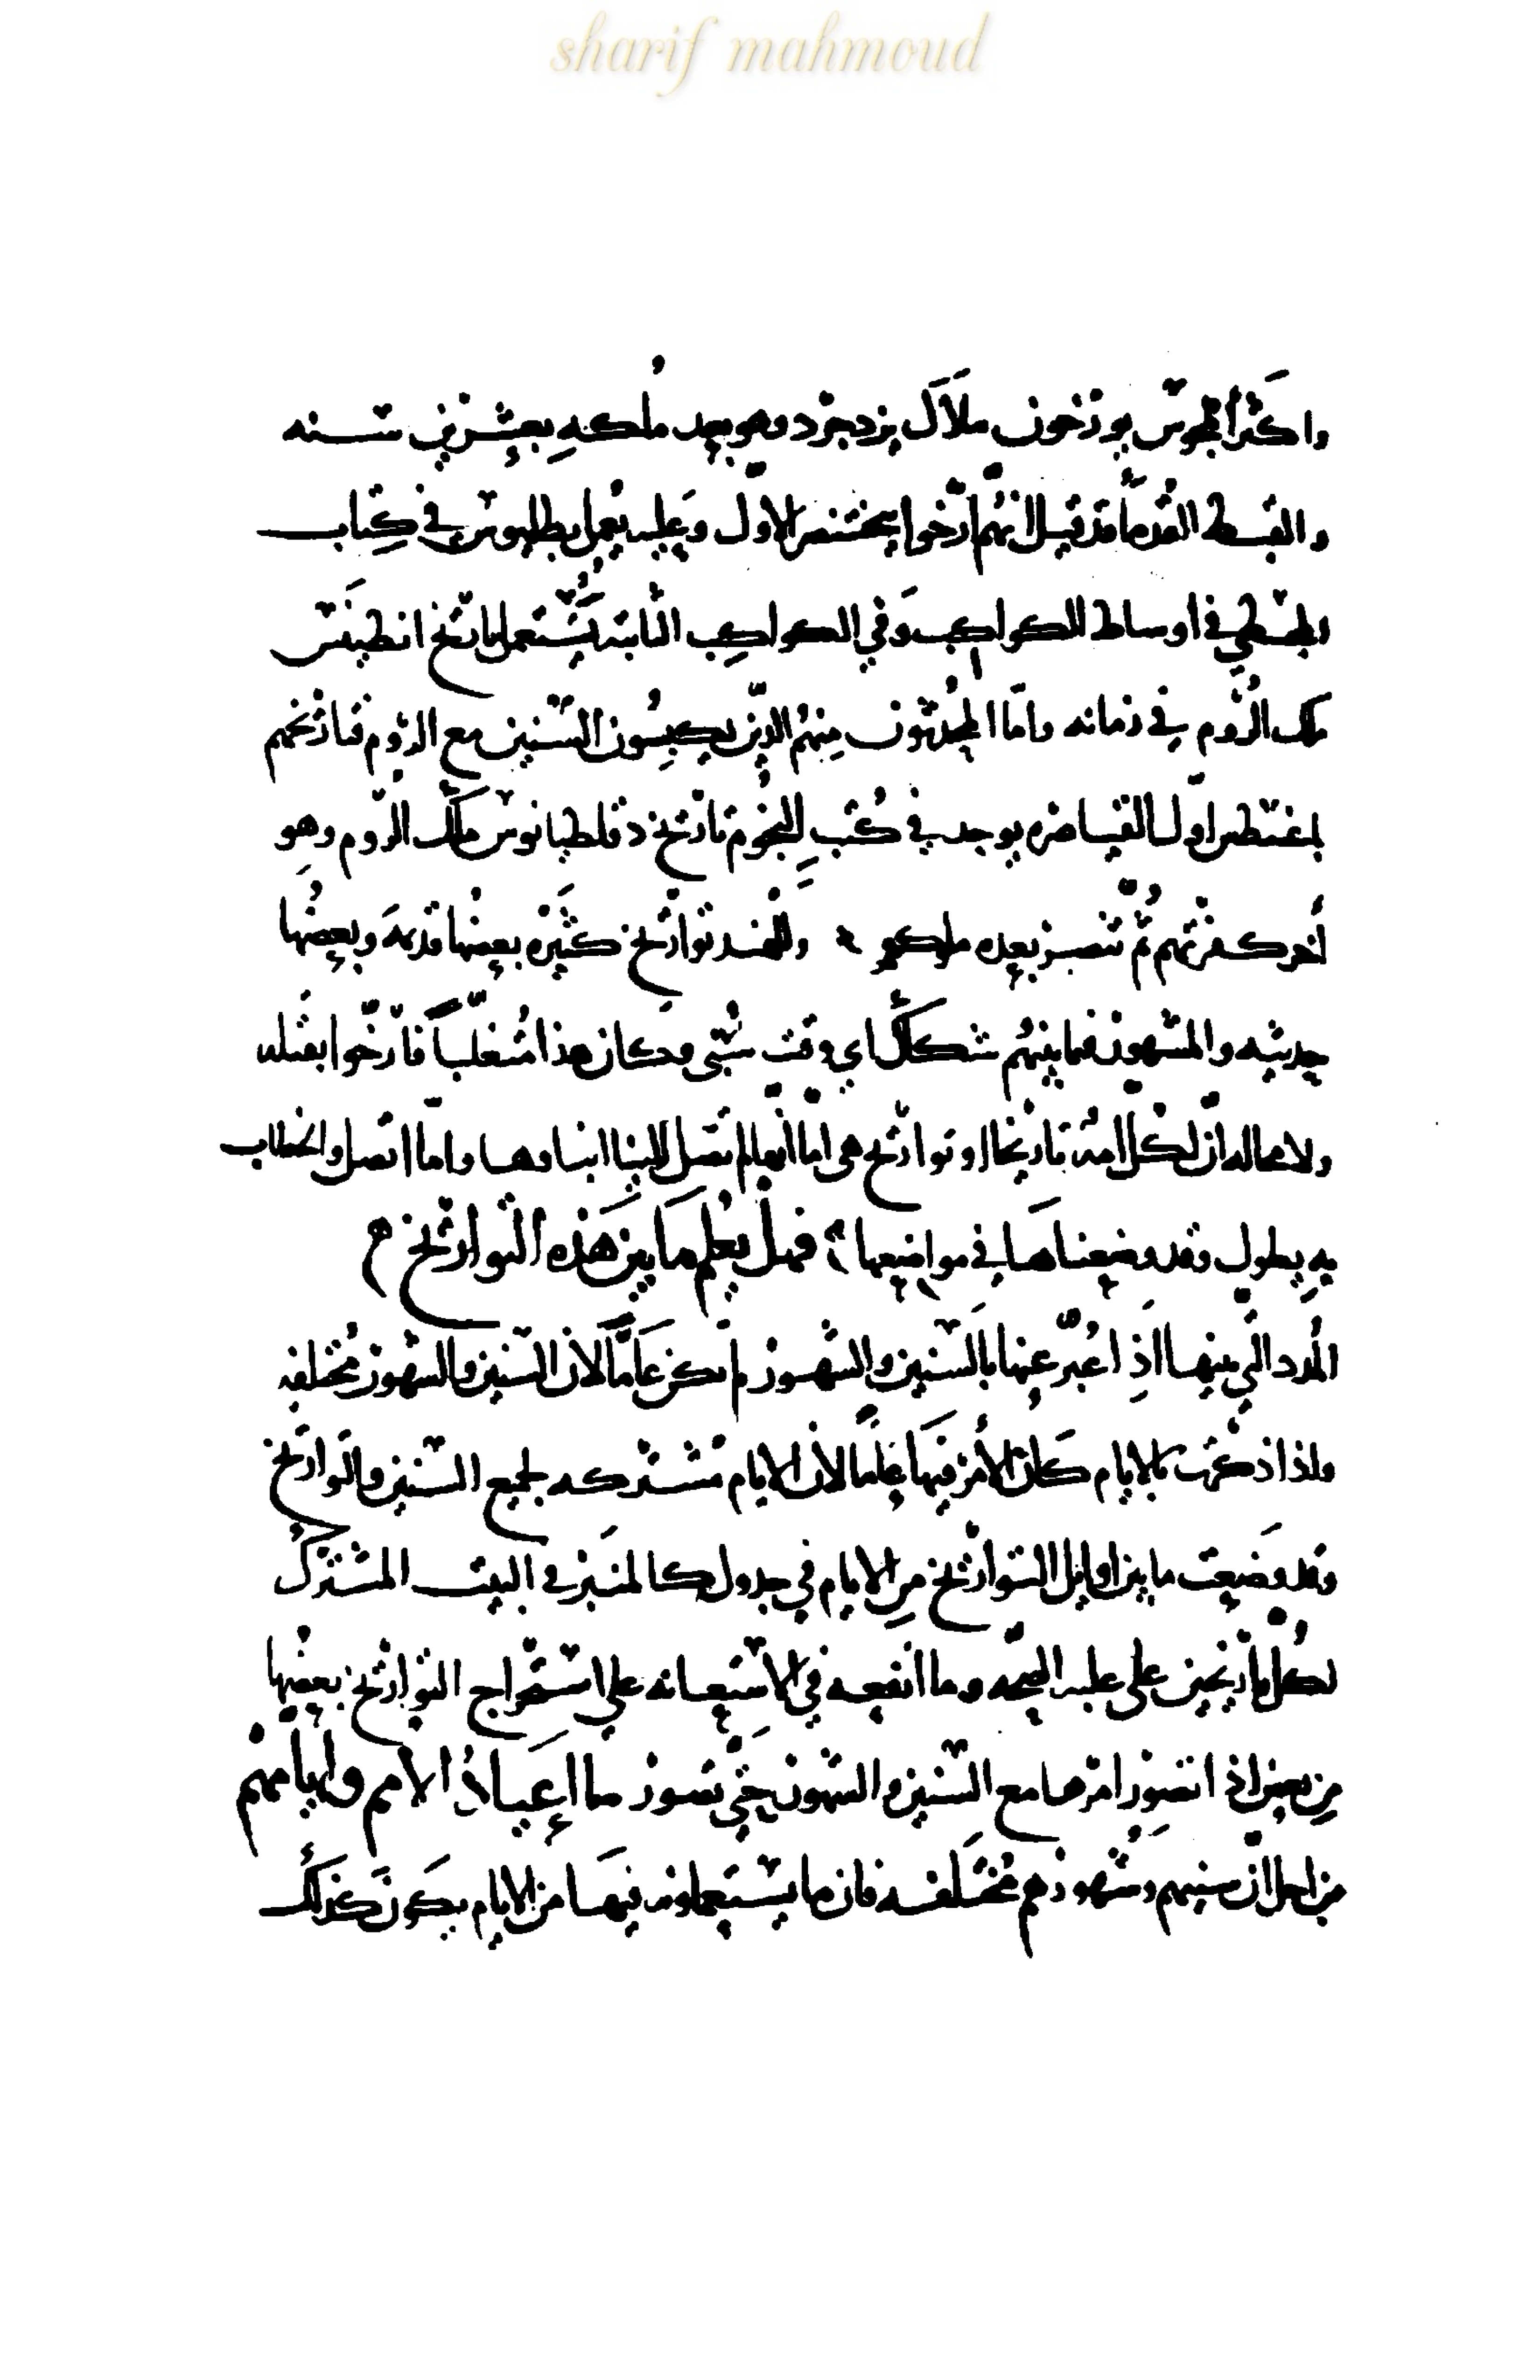 sharif mahmoud
واكثر المجوس يورخون بهلاك يزدجرد وهو بعد ملكه بعشرين سنه
والقبط القدما قد قيل انهم ارخوا ببختنصر الاول وعليه يعمل بطليموس في كتاب
المجسطي في اوساط الكواكب وفي الكواكب الثابته يستعمل تاريخ انطينس
ملك الروم في زمانه واما المحدثون منهم الذين يكبسون السنين مع الروم فتاريخهم
باغسطس اول القياصره يوجد في كتب النجوم تاريخ دقلطيانوس ملك الروم وهو
أخر كفرتهم ثم تنصر بعده ملوكهم وللهند تواريخ كثيره بعضها قديمه وبعضها
حديثه والمشهور فيما بينهم شككال اي وقت شق وكان هذا متغلباً فارخوا بقتله
ولا محاله ان لكل امة تاريخا او تواريخ هي اما انها لم تتصل الينا انباوها واما اتصل والخطاب
به يطول وقد وضعناها في مواضعها فهل يعلم ما بين هذه التواريخ
المدد التي بينها اذا عُبّر عنها بالسنين والشهور لم تكن عامّة لان السنين والشهور مختلفه
واذا ذكرت بالايام كان الأمر فيها عاما لان الايام مشتركه لجميع السنين والتواريخ
وقد وضعت ما بين اوايل التواريخ من الايام في جدول كالمنبر في البيت المشترك
لكل تاريخين على عليه الصحّه وما انفعه في الاستعانه علي استخراج التواريخ بعضها
من بعض اذا تصور امرها مع السنين والشهور حتى تصور ما اعياد الامم وايامهم
من اجل ان سنيهم وشهورهم مختلفه فان ما يستعملونه فيها من الايام يكون كذلك